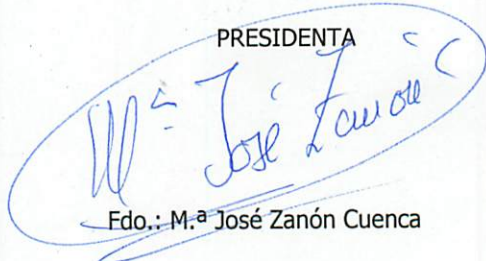 PRESIDENTA
Mª José Zanón C
Fdo.: M.ª José Zanón Cuenca